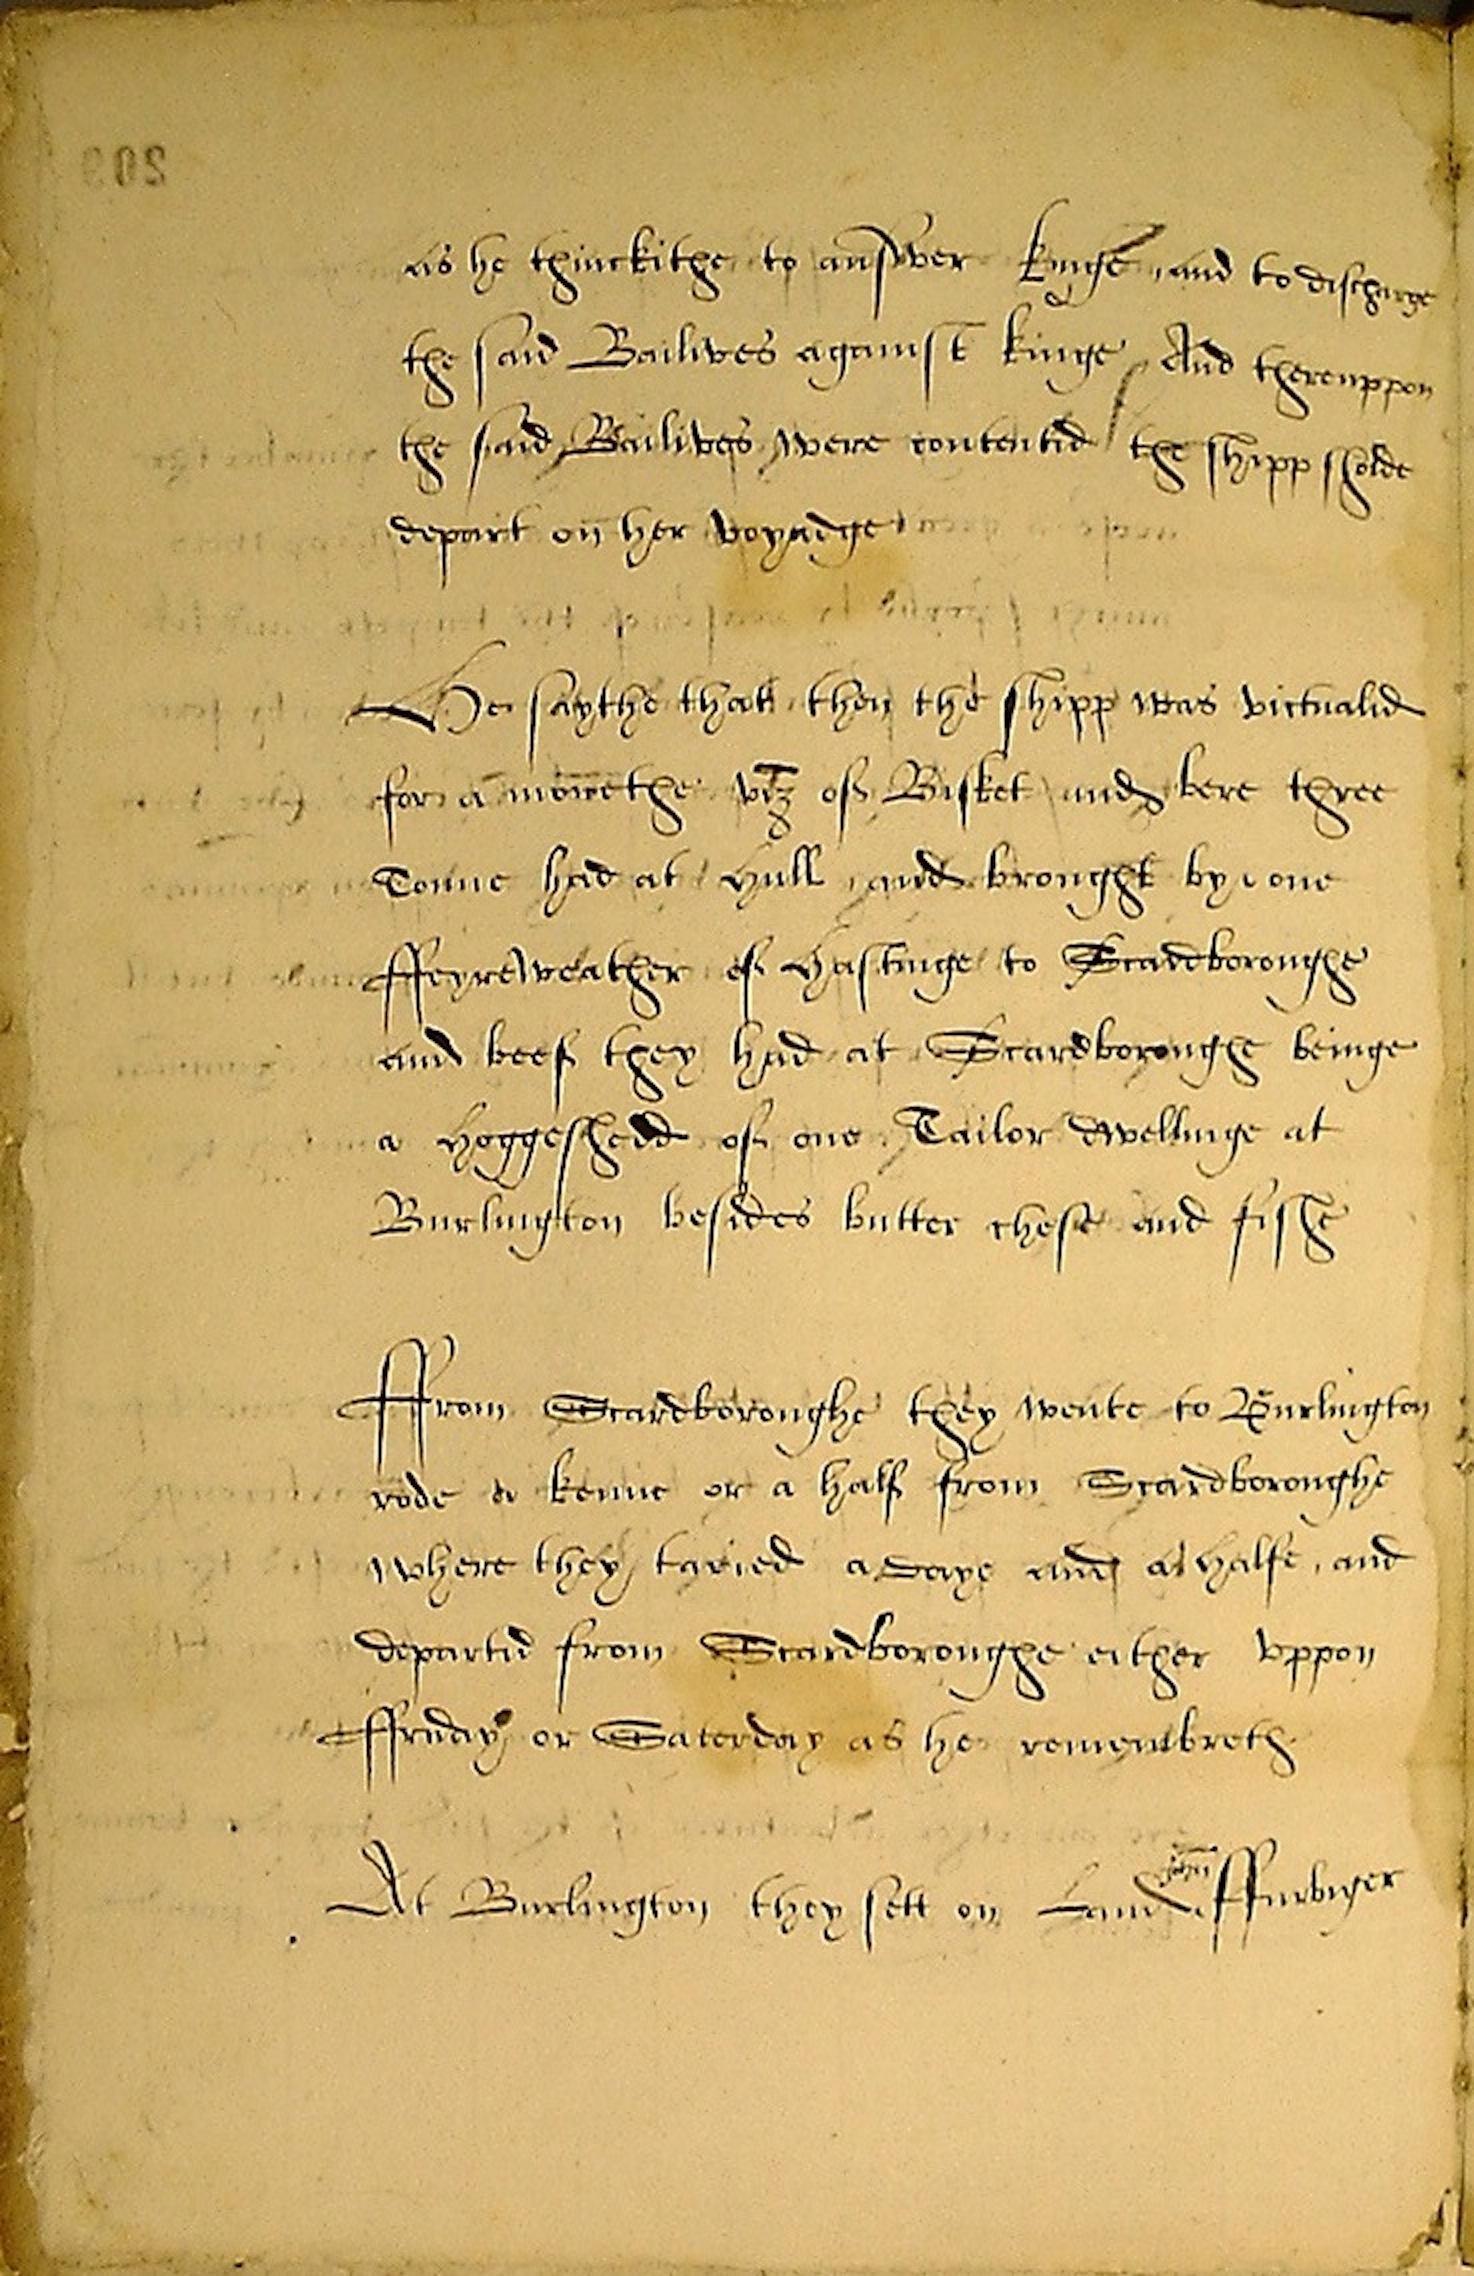 as he thinckithe to answer Kynge, and to discharge
the said Bailives against kinge And thereuppon
the said Bailives were contentid the shipp sholde
depart on her voyadge
He saythe that then the shipp was victualid
for a monethe viz of Bisket and bere three
Tonne had at Hull and brought by one
ffeyreweather of Hastinge to Scardboroughe
and beef they had at Scardboroughe beinge
a Hoggeshedd of one Tailor dwellinge at
Burlington besides butter chese and fishe
ffrom Scardboroughe they wente to Burlington
rode a kenne or a half from Scardboroughe
where they taried a daye and a halfe, and
departid from Scardboroughe either vppon
ffryday or Saterday as he remembreth
John
At Burlington they sett on Land ffurbyser
209